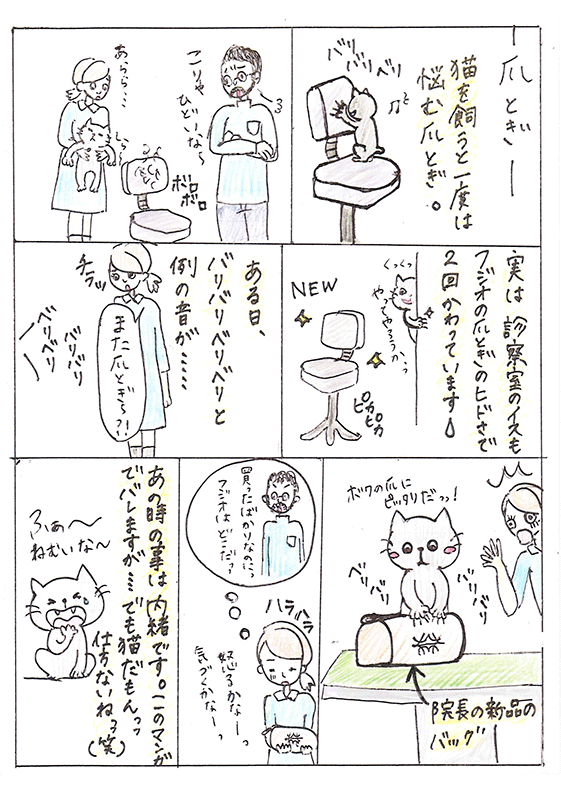 ー爪とぎー
猫を飼うと一度は
悩む爪とぎ。
バリバリベリ
こりゃ
ひどいな〜
あらら…
しら〜
ボロ
ボロ
実は 診察室のイスも
フジオの爪とぎのヒドさで
2回かわっています
くっくっ
やってやろうか…
NEW
ピカ
ピカ
ある日、
バリバリベリベリと
例の音が……
チラッ
また爪とぎら?!
バリバリ
ベリベリ
ボクの爪に
ピッタリだっっ!
ベリベリ
バリバリ
院長の新品の
バッグ
買ったばかりなのにっ
フジオはどこだ?
ハラハラ
怒るかなーっ
気づくかなーっ
あの時の事は内緒です。このマンガ
でバレますが…でも猫だもんっっ
仕方ないねっ
(笑)
ふぁ〜
ねむいな〜